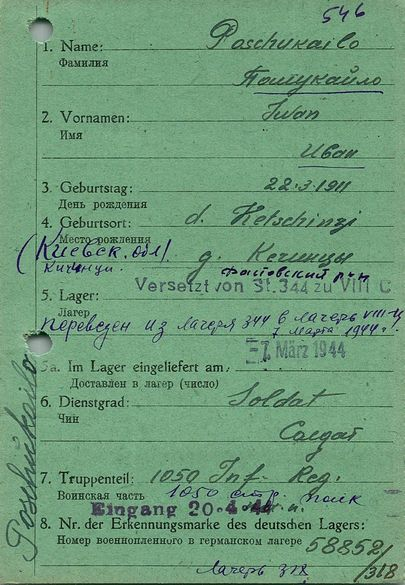 546
1. Name: Poschukailo
Фамилия Пошукайло
2. Vornamen: Iwan
Имя Иван
3. Geburtstag: 22.3.1911
День рождения
4. Geburtsort: d. Ketschinzi
Место рождения д. Кечинцы
(Киевск. обл)
Фастовский р-н
Versetzt von St. 344 zu VIII C
5. Lager:
Лагерь
переведен из лагеря 344 в лагерь VIII-Ц
7 марта 1944 г.
-7. März 1944
5a. Im Lager eingeliefert am:
Доставлен в лагерь (число)
6. Dienstgrad: Soldat
Чин Солдат
7. Truppenteil: 1050 Inf. Reg.
Воинская часть 1050 стр. полк
Eingang 20.4.44
8. Nr. der Erkennungsmarke des deutschen Lagers:
Номер военнопленного в германском лагере 588521
/318
Лагерь 318
Poschukailo